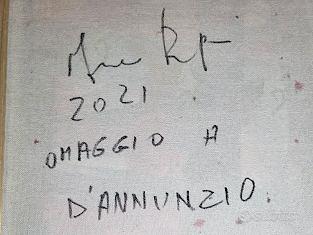 2021
OMAGGIO A
D'ANNUNZIO.